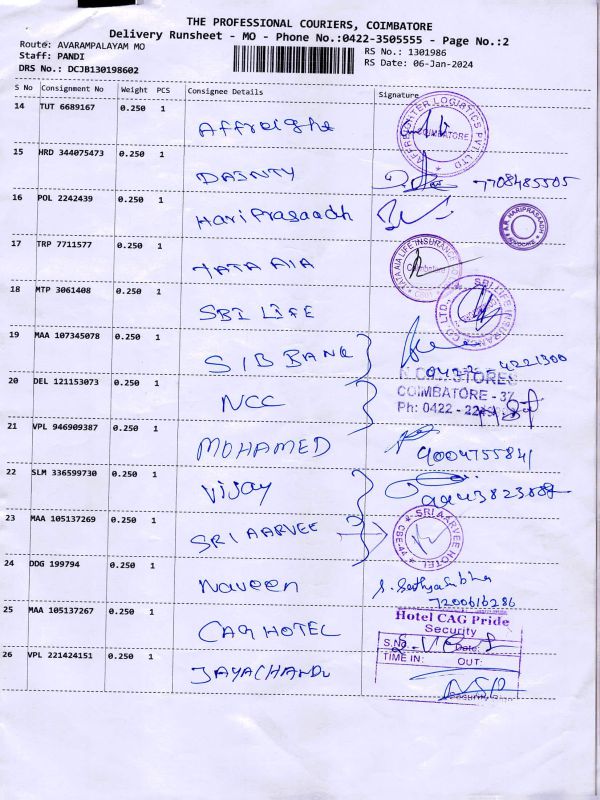 THE PROFESSIONAL COURIERS, COIMBATORE
Delivery Runsheet - MO - Phone No.:0422-3505555 - Page No.:2
Route: AVARAMPALAYAM MO
Staff: PANDI
DRS No.: DCJB130198602
RS No.: 1301986
RS Date: 06-Jan-2024
S No Consignment No Weight PCS Consignee Details Signature
14 TUT 6689167 0.250 1
COIMBATORE
15 HRD 344075473 0.250 1 DAINTY 7708485505
16 POL 2242439 0.250 1 Hari Prasaadh
A.R. HARIPRASAADH
ADVOCATE
17 TRP 7711577 0.250 1 TATA AIA
TATA AIA LIFE INSURANCE CO. LTD.
Coimbatore
18 MTP 3061408 0.250 1 SBI LIFE
SBI LIFE INSURANCE CO. LTD.
19 MAA 107345078 0.250 1 SIB BANK
0422 - 4221300
20 DEL 121153073 0.250 1 NCC
STORES
COIMBATORE - 37
Ph: 0422 -
21 VPL 946909387 0.250 1 MOHAMED 9004755841
22 SLM 336599730 0.250 1 Vijay
23 MAA 105137269 0.250 1 SRI AARVEE
SRI AARVEE HOTEL
CBE-44
24 DDG 199794 0.250 1 Naveen
7200616286
25 MAA 105137267 0.250 1 CAG HOTEL
Hotel CAG Pride
Security
S.No Date:
TIME IN: OUT:
26 VPL 221424151 0.250 1